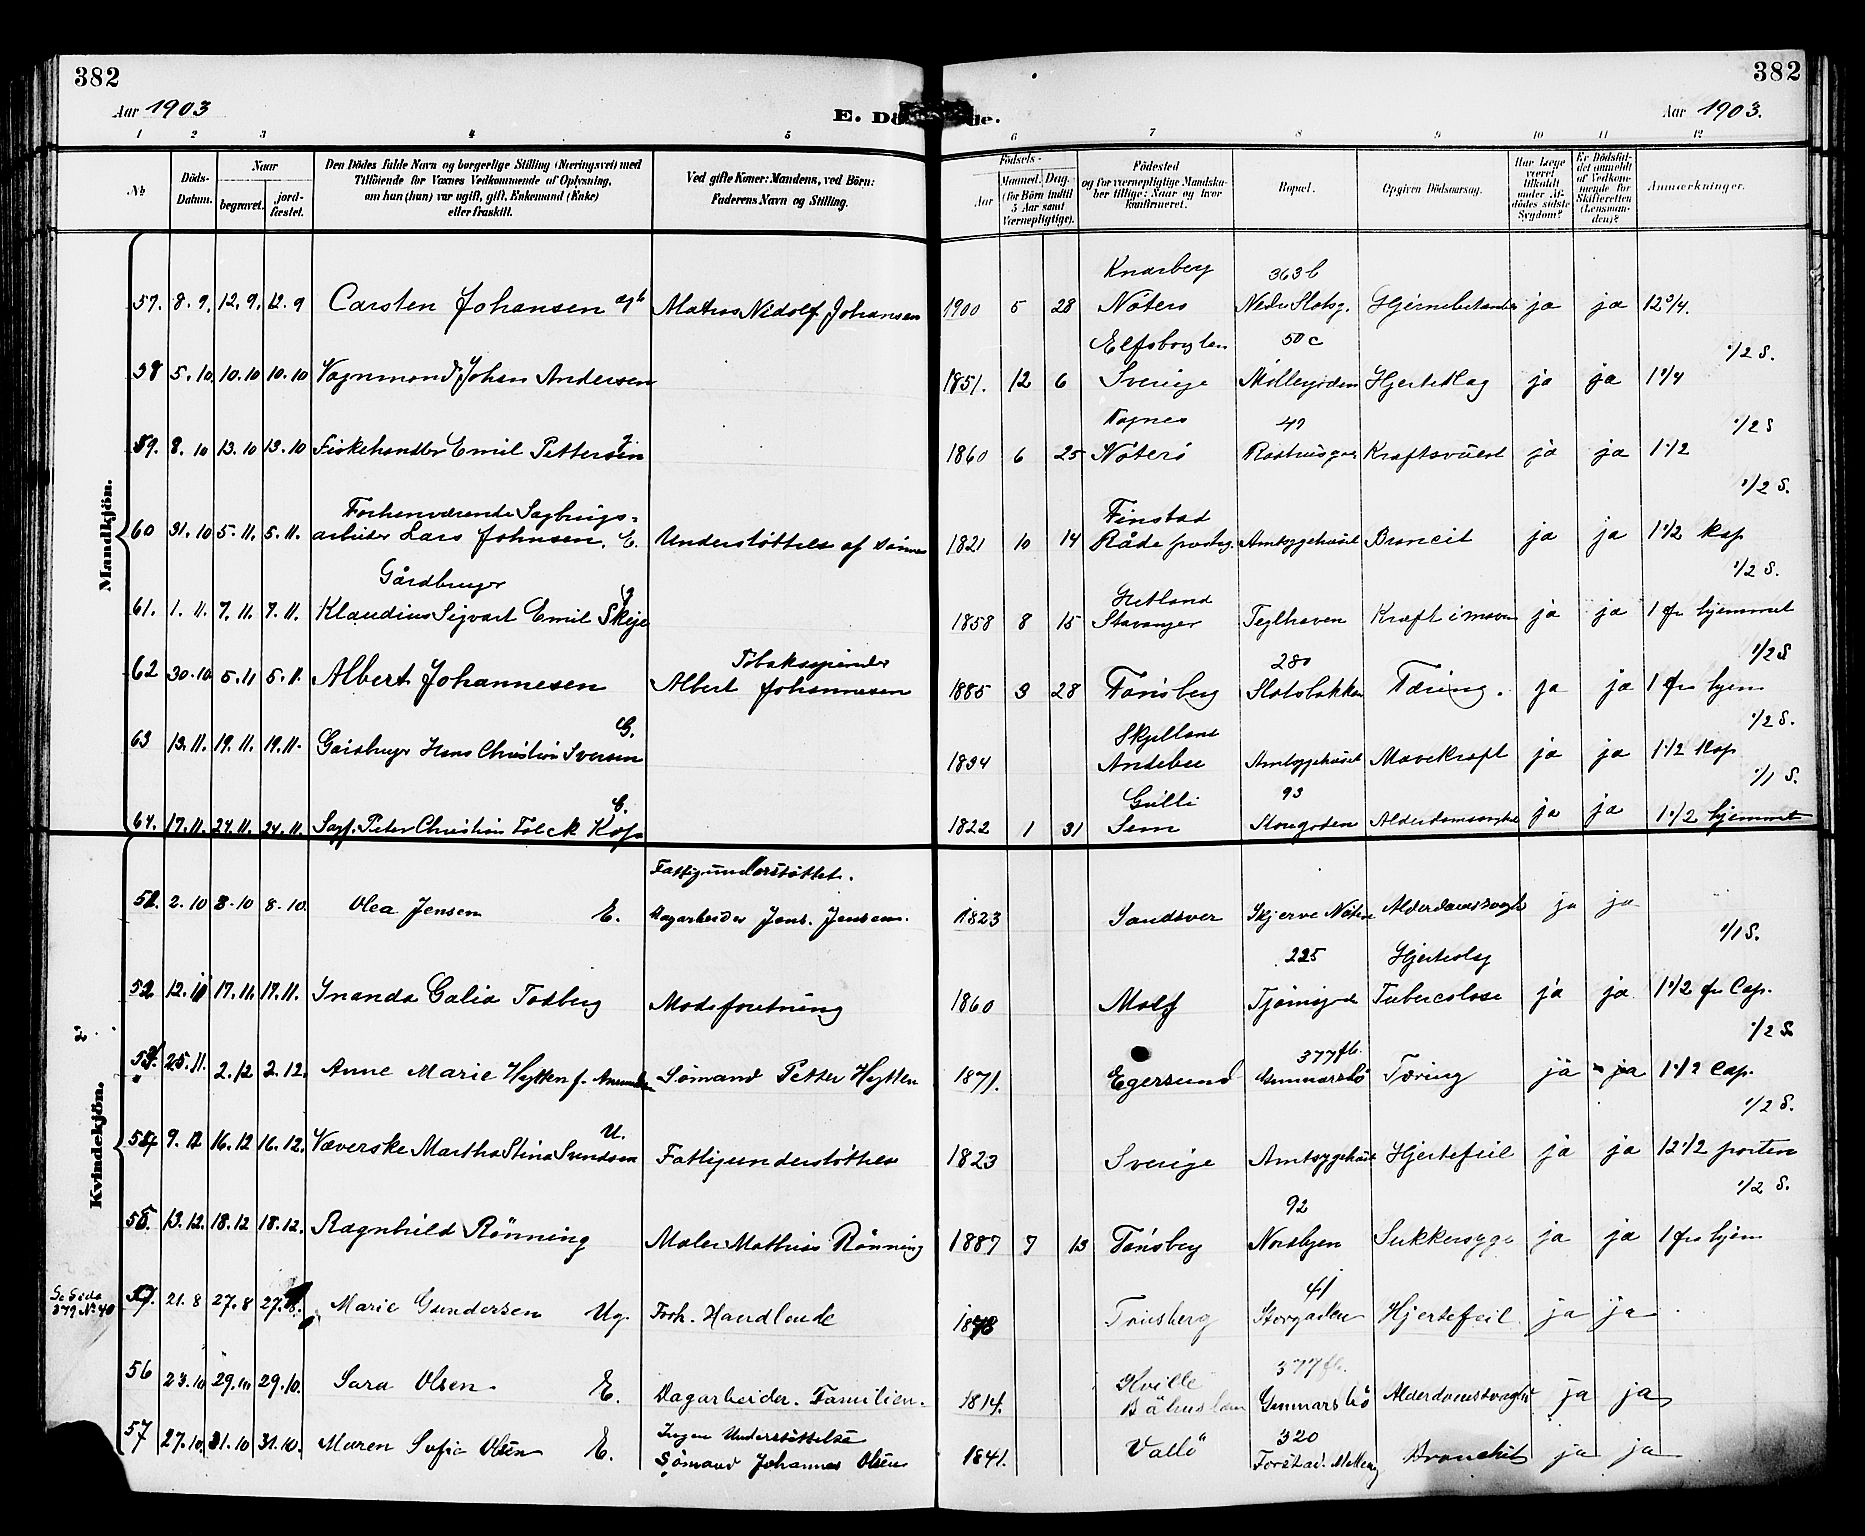 382
382
Aar 1903
E. Dö de.
Aar 1903.
1 2 3 4 5 6 7 8 9 10 11 12
No
Döds-Datum.
Naar
begravet.
jordfæstet.
Den Dödes fulde Navn og borgerlige Stilling (Næringsvei) med
Tilföiende for Voxnes Vedkommende af Oplysning,
om han (hun) var ugift, gift, Enkemand (Enke)
eller fraskilt.
Ved gifte Koner: Mandens, ved Börn:
Faderens Navn og Stilling.
Födsels-
Aar
Maaned. Dag.
(for Börn indtil
5 Aar samt
Værnepligtige).
Födested
og for værnepligtige Mandska-
ber tillige: Naar og hvor
konfirmeret.
Bopæl.
Opgiven Dödsaarsag.
Har Læge
været
tilkaldt
under Af-
dödes sidste
Sygdom?
Er Dödsfal-
det anmeldt
af Vedkom-
mende for
Skifteretten
(Lensman-
den)?
Anmærkninger.
Mandkjön.
Knarberg 363 b
57. 8.9. 12.9. 12.9 Carsten Johansen Matros Nidolf Johansen 1900 5 28 Nøterø Nedre Slotsg. ja ja
50 c 1/2 S.
58 5.10 10.10 10.10 Vognmand Johan Andersen 1851. 12 6 Sverige Møllegaden Hjerteslag ja ja
49 1/2 S
59. 8.10 13.10 13.10 Fiskehandler Emil Pettersen 1860 6 25 Nøterø Kræftsvulst ja ja 1 1/2
1/2 S.
Forhenværende Sagbrugs-
60 31.10 5.11. 5.11. arbeider Lars Johnsen. E. Understøttelse af sønnen 1821 10 14 Finstad Råde Amtsygehuset Broncit ja ja 1 1/2 Kap
Gårdbruger 1/2 S.
61. 1.11. 7.11. 7.11. Klaudius Sigvart Emil Skeje g 1858 8 15 Hetland Stavanger Teglhaven Kræft i maven ja ja 1 fr hjemmet
280 1/2 S
62 30.10 5.11 5.11. Albert Johannesen Tobaksspinder Albert Johannesen 1885 3 28 Tønsberg Slotsbakken Tæring. ja ja 1 fra hjem
1/2 S.
63 13.11. 19.11. 19.11. Gaardbruger Hans Christian Iversen G. 1834 Andebu Amtsygehuset Mavekræft ja ja 1 1/2 Kap
93 1/1 S.
64. 17.11. 24.11. 24.11. Sagf. Peter Christian Folck Kop E. 1822 1 31 Gulli Sem Storgaden ja ja 1 1/2 hjemmet
Kvindekjön.
Fattigunderstøttet.
51. 2.10 8.10 8.10. Olea Jensen E. Dagarbeider Jens. Jensen. 1823 Sandsver Skjerve Nøterø Alderdomssvaghed ja ja
1/1 S.
225 Hjerteslag
52 12.11 17.11. 17.11. Inanda Galia Todberg Modeforretning 1860 Tuberculose ja ja 1 1/2 fr Cap.
1/2 S.
377 fb.
53. 25.11. 2.12 2.12. Anne Marie Hytten f. Sømand Petter Hytten 1871. Egersund Gunnarsbø Tæring ja ja 1 1/2 Cap.
1/2 S.
54 9.12 16.12 16.12. Væverske Martha Stina Svendsen U. Fattigunderstøttelse 1823 Sverige Amtsygehuset Hjertefeil ja ja 12 1/2 porten
1/2 S.
92
55. 13.12. 18.12 18.12. Ragnhild Rønning Maler Mathias Rønning 1887 7 13 Tønsberg Nordbyen Sukkersyge ja ja 1 fra hjem
41
Se Side 379 No 40 21.8 27.8 27.8. Marie Gundersen Ug. Forh. Handlende Tønsberg Storgaden Hjertefeil. ja ja
377 fb.
56 23.10 29.10 29.10. Sara Olsen. E. Dagarbeider. Familien. 1814. Kville Båhuslæn Gunnarsbö Alderdomssvaghed ja ja
57 27.10. 31.10 31.10. Maren Sofie Olsen E. Ingen Understøttelse Sømand Johannes Olsen 1841. Vallö 320 Bronchit ja ja